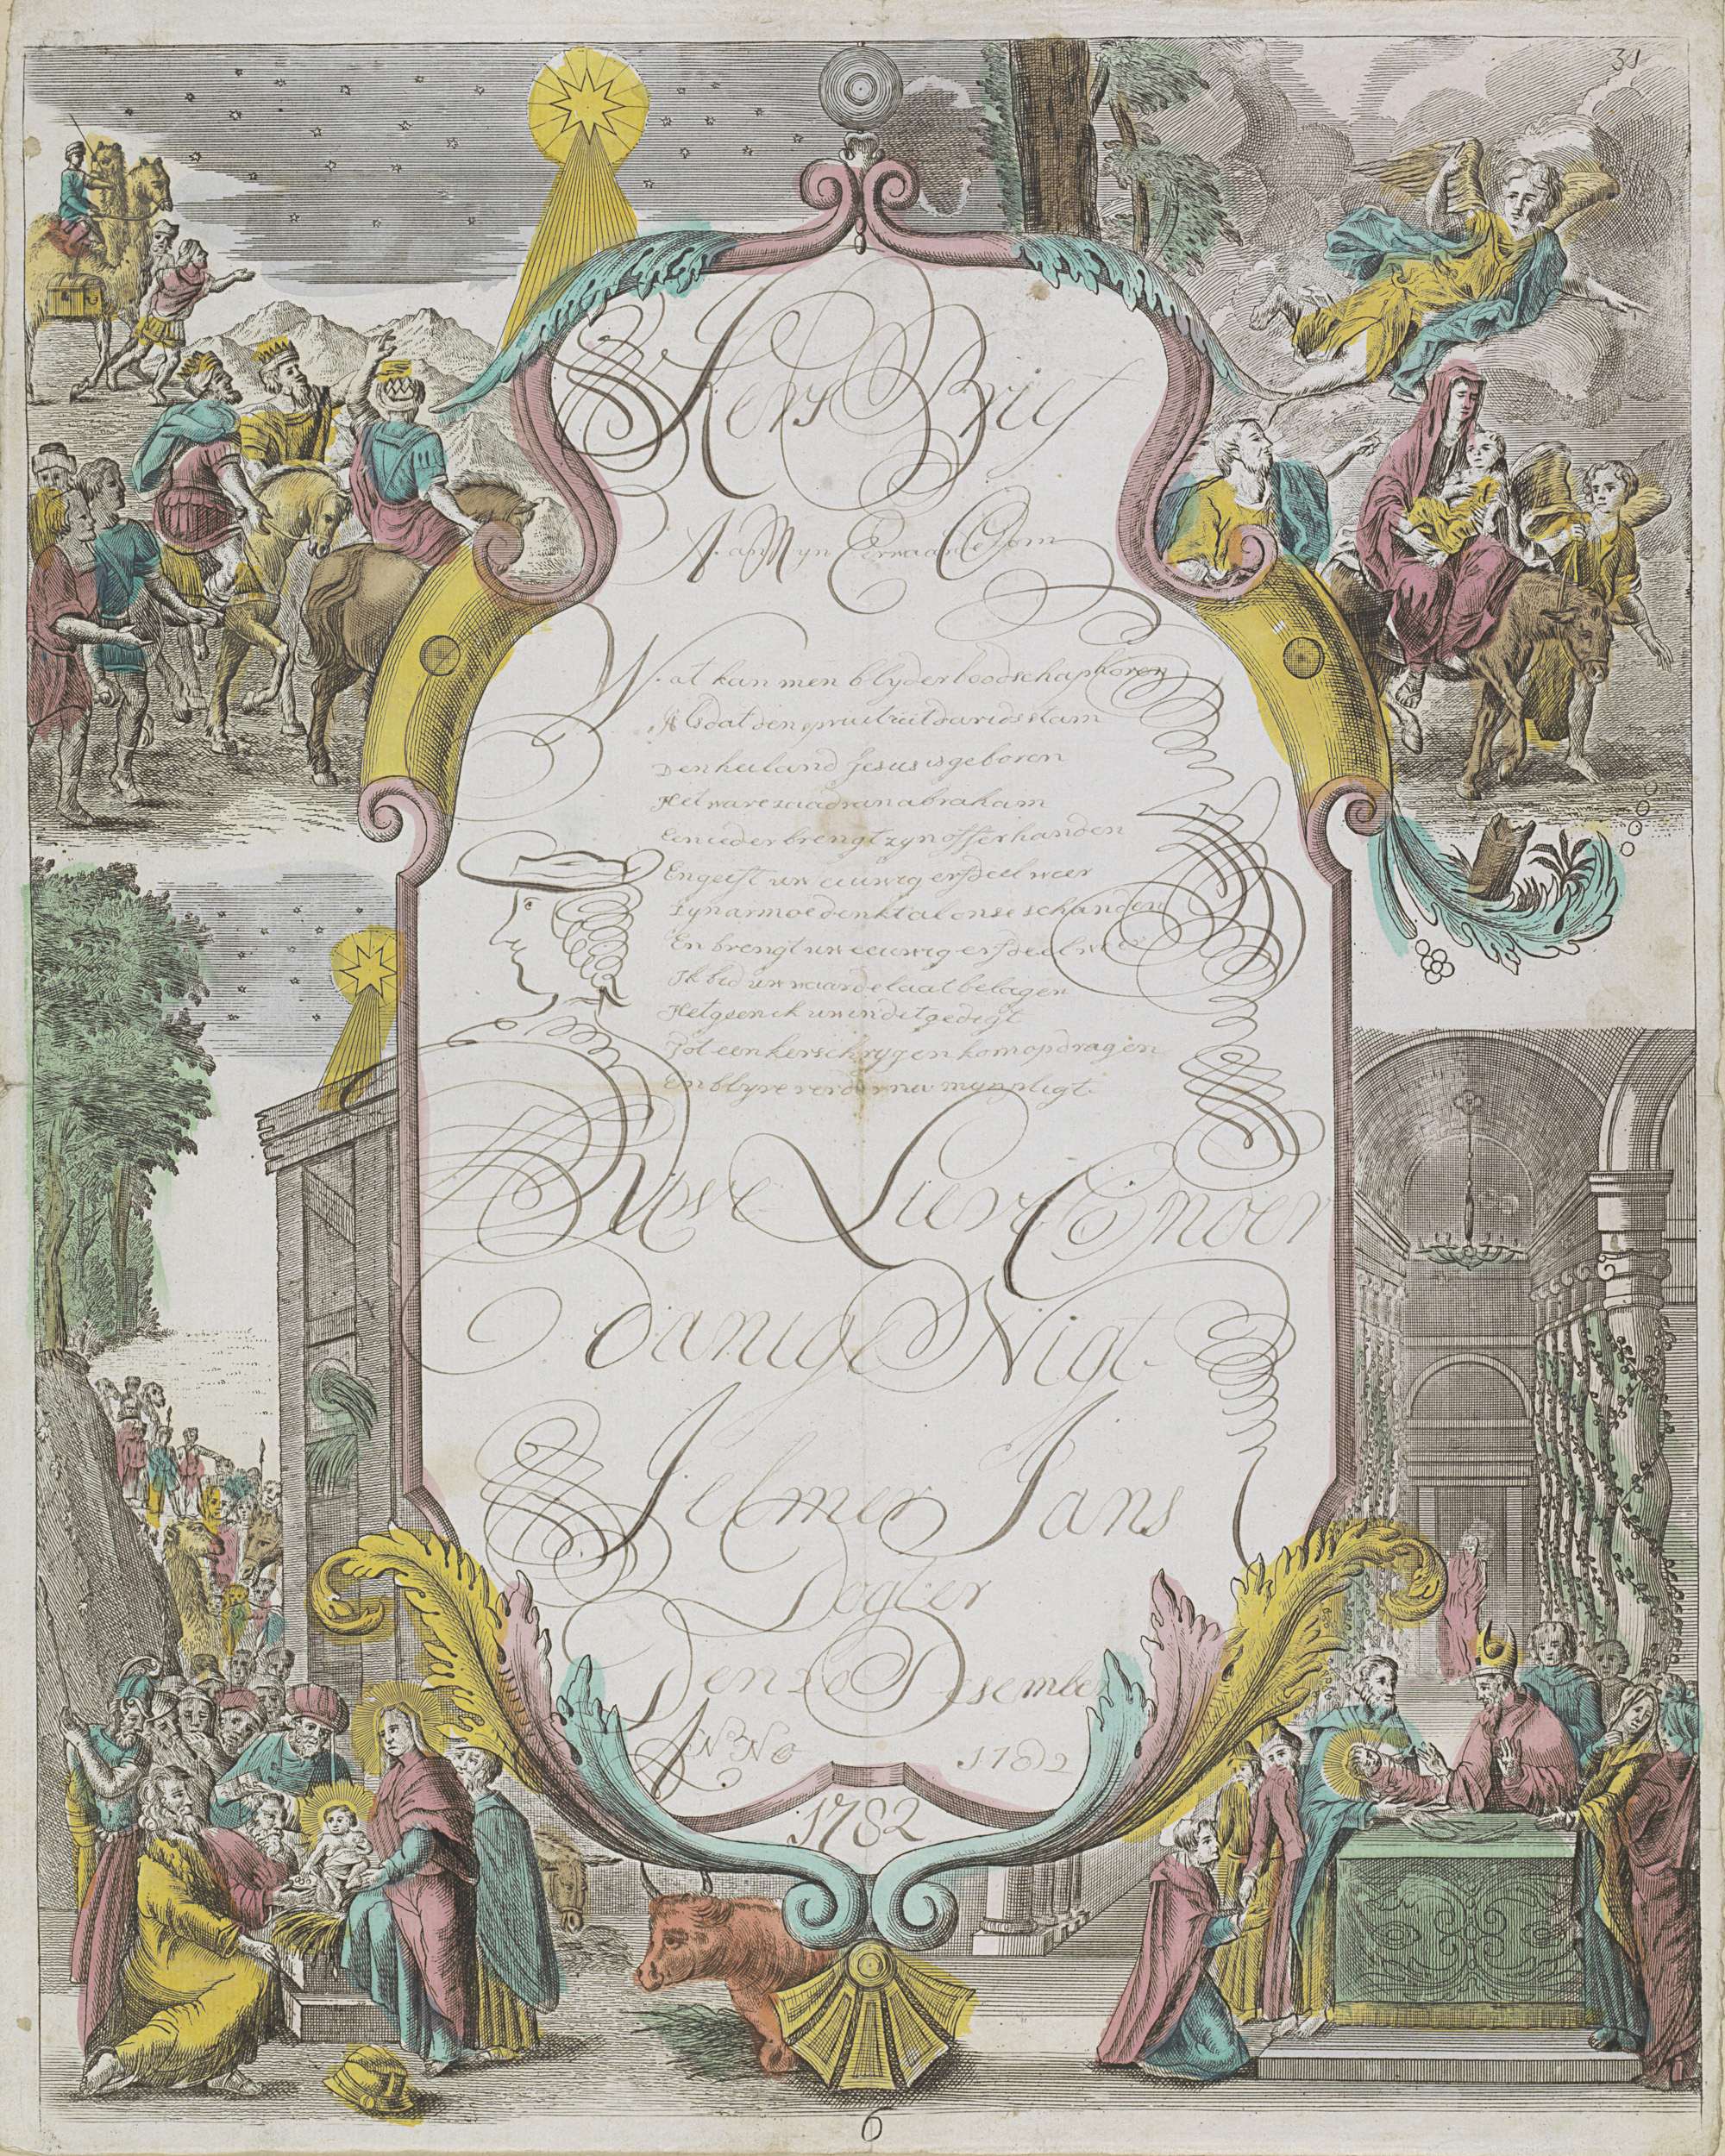 31
Kers Brief
Aan Myn Eerwaarde Oom
Wat kan men blyder boodschap horen
Als dat den spruit uit davids stam
Den heiland Jesus is geboren
Het ware zaad van abraham
Een ieder brengt zyn offerhanden
En geeft uw eeuwig erfdeel weer
Zyn armoe denkt al onse schanden
En brengt uw eeuwig erfdeel weer
Ik bid uw waarde laat behagen
Het geen ik uw in dit gedigt
Tot een kerschrygen kom opdragen
En blyve verder na myn pligt
UWE Zeer Onder
danige Nigt
Jelmer Jans
Dogter
Den 26 Desember
ANNO 1782
1782
6